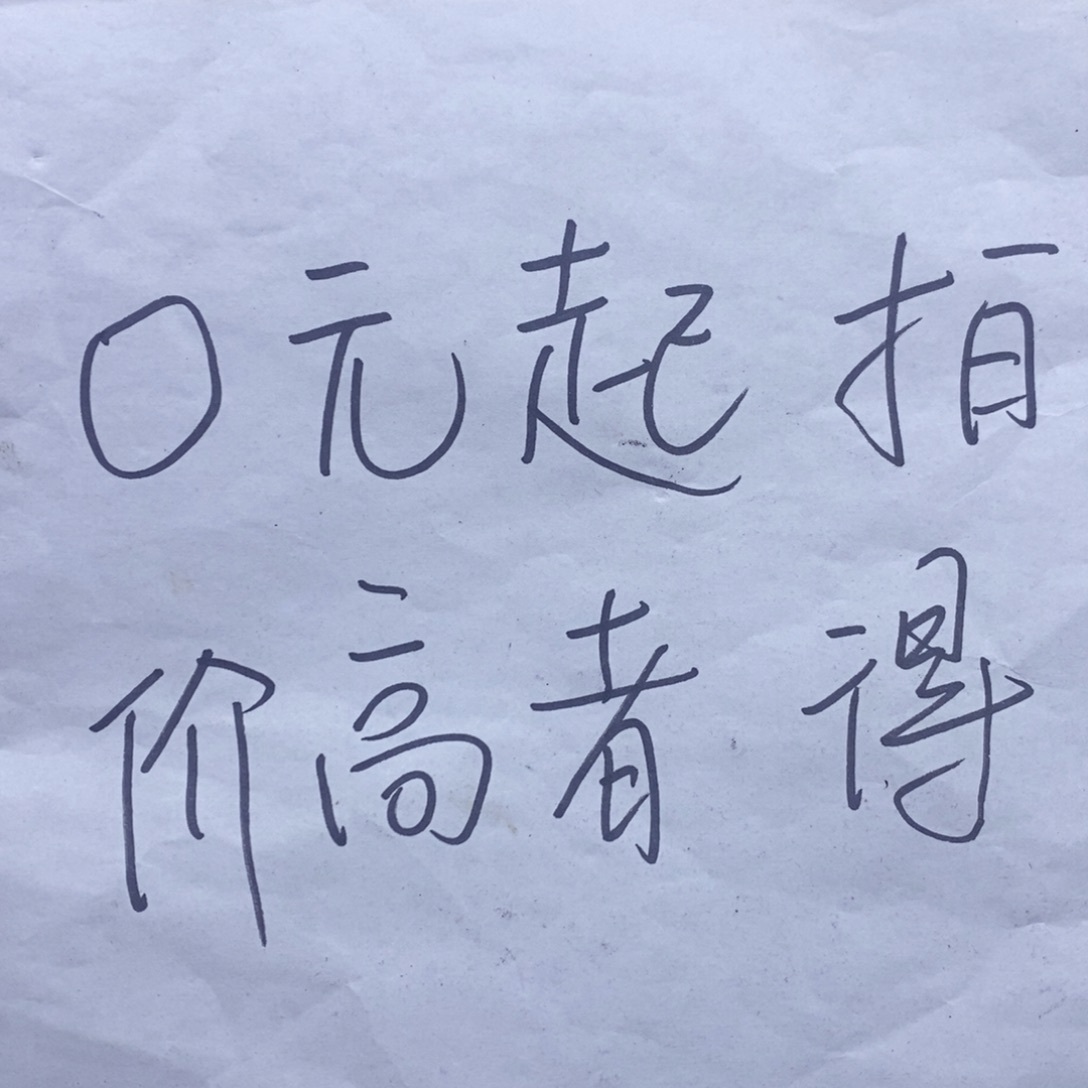 0元起拍
价高者得